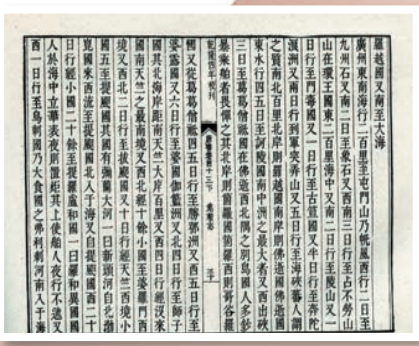 羅越國又南至大海
廣州東南海行二百里至屯門山乃帆風西行二日至
九州石又南二日至象石又西南三日行至占不勞山
山在環王國東二百里海中又南二日行至陵山又一
日行至門毒國又一日行至古笪國又半日行至奔陀
浪洲又兩日行到軍突弄山又五日行至海硤蕃人謂
之質南北百里北岸則羅越國南岸則佛逝國佛逝國
東水行四五日至訶陵國南中洲之最大者又西出硤
三日至葛葛僧祇國在佛逝西北隅之別島國人多鈔
暴乘舶者畏憚之其北岸則箇羅國箇羅西則哥谷羅
乾隆四年校刊 唐書卷四十三下 地理志 三十
國又從葛葛僧祇四五日行至勝鄧洲又西五日行至
婆露國又六日行至婆國伽藍洲又北四日行至師子
國其北海岸距南天竺大岸百里又西四日行經沒來
國南天竺之最南境又西北經十餘小國至婆羅門西
境又西北二日行至拔䫻國又十日行經天竺西境小
國五至提䫻國其國有彌蘭大河一曰新頭河自北渤
崑國來西流至提䫻國北入于海又自提䫻國西二十
日行經小國二十餘至提羅盧和國一曰羅和異國國
人於海中立華表夜則置炬其上使舶人夜行不迷又
西一日行至烏剌國乃大食國之弗利剌河南入于海